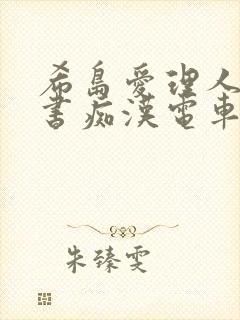 希島愛理人
書痴漢電車
朱臻雯